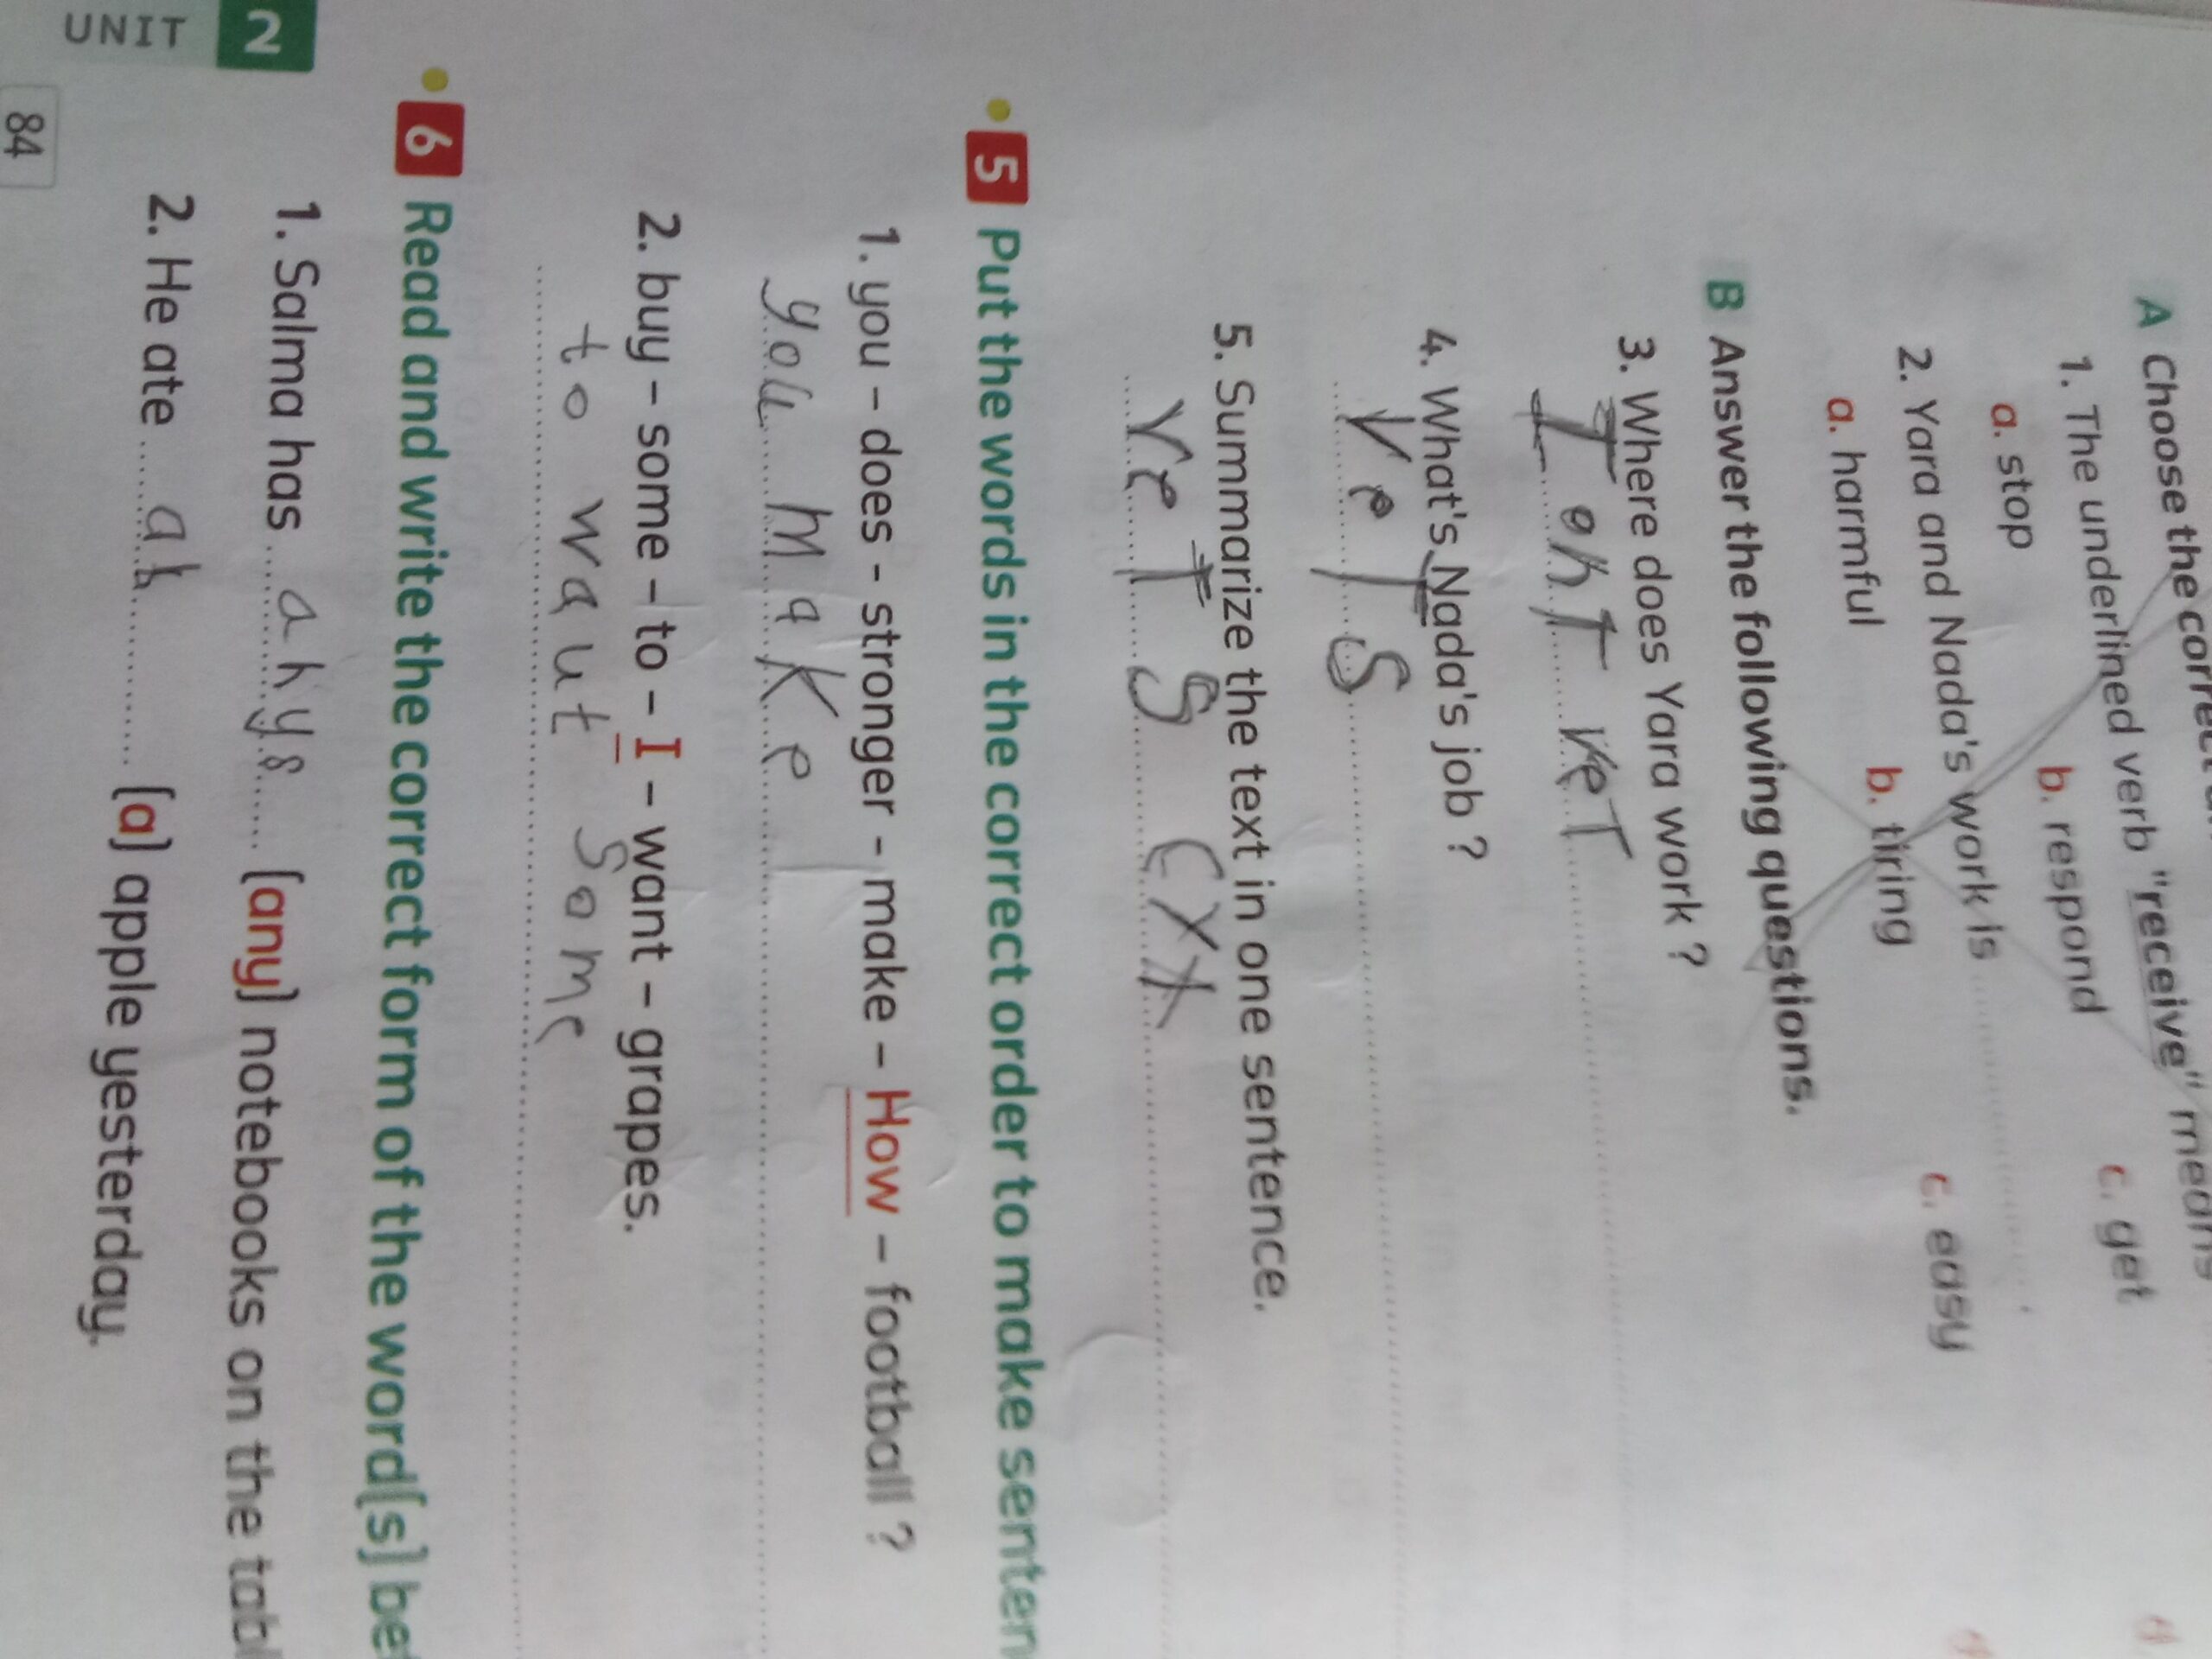 A Choose the correct
1. The underlined verb "receive" means
a. stop b. respond c. get
2. Yara and Nada's work is
a. harmful b. tiring c. easy
B Answer the following questions.
3. Where does Yara work ?
veT
4. What's Nada's job ?
5. Summarize the text in one sentence.
5 Put the words in the correct order to make senten
1. you – does – stronger – make – How – football ?
you make
2. buy – some – to – I – want – grapes.
to waut some
6 Read and write the correct form of the word[s] be
1. Salma has [any] notebooks on the tabl
2. He ate [a] apple yesterday.
UNIT 2
84